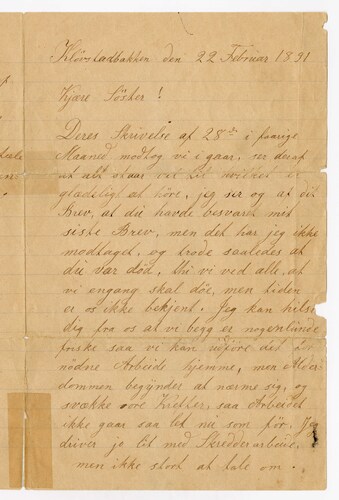 Klörstadbakken den 22 Februar 1891
Kjære Söster!
Deres Skrivelse af 28de i forrige
Maaned modtog vi i gaar, ser deraf
at alt staar vel til hvilket er
glædeligt at höre, jeg ser og af dit
Brev, at du havde besvaret mit
siste Brev, men det har jeg ikke
modtaget, og trode saaledes at
du var död, thi vi ved alle, at
vi engang skal döe, men tiden
er os ikke bekjent. Jeg kan hilse
dig fra os at vi begge er nogenlunde
friske saa vi kan udföre det
nödne Arbeide hjemme, men Alder
dommen begynder at nærme sig, og
svække vore Kræfter, saa Arbeidet
ikke gaar saa let nu som för. Jeg
driver jo lit med Skredderarbeide,
men ikke stort at tale om.